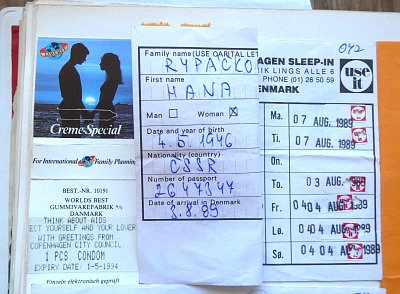 Creme-Special
For International Family Planning
BEST.-NR. 10191
WORLDS BEST
GUMMIVAREFABRIK
DANMARK
THINK ABOUT AIDS
ECT YOURSELF AND YOUR LOVER
WITH GREETINGS FROM
COPENHAGEN CITY COUNCIL.
1 PCS. CONDOM
EXPIRY DATE: 1-5-1994.
Einzeln elektronisch geprüft
Family name (USE CAPITAL LET
RYPACKO
First name
HANA
Man Woman
Date and year of birth
4. 5. 1946
Nationality (country)
CSSR
Number of passport
2647347
Date of arrival in Denmark
3. 8. 89
042
AGEN SLEEP-IN
RIK LINGS ALLE 6
PHONE (01) 26 50 59
ENMARK
use it
Ma. 07 AUG. 1989
Ti. 07 AUG. 1989
On.
To. 03 AUG. 1989
Fr. 04 04 AUG. 1989
Lø. 04 04 AUG. 1989
Sø. 04 04 AUG. 1989